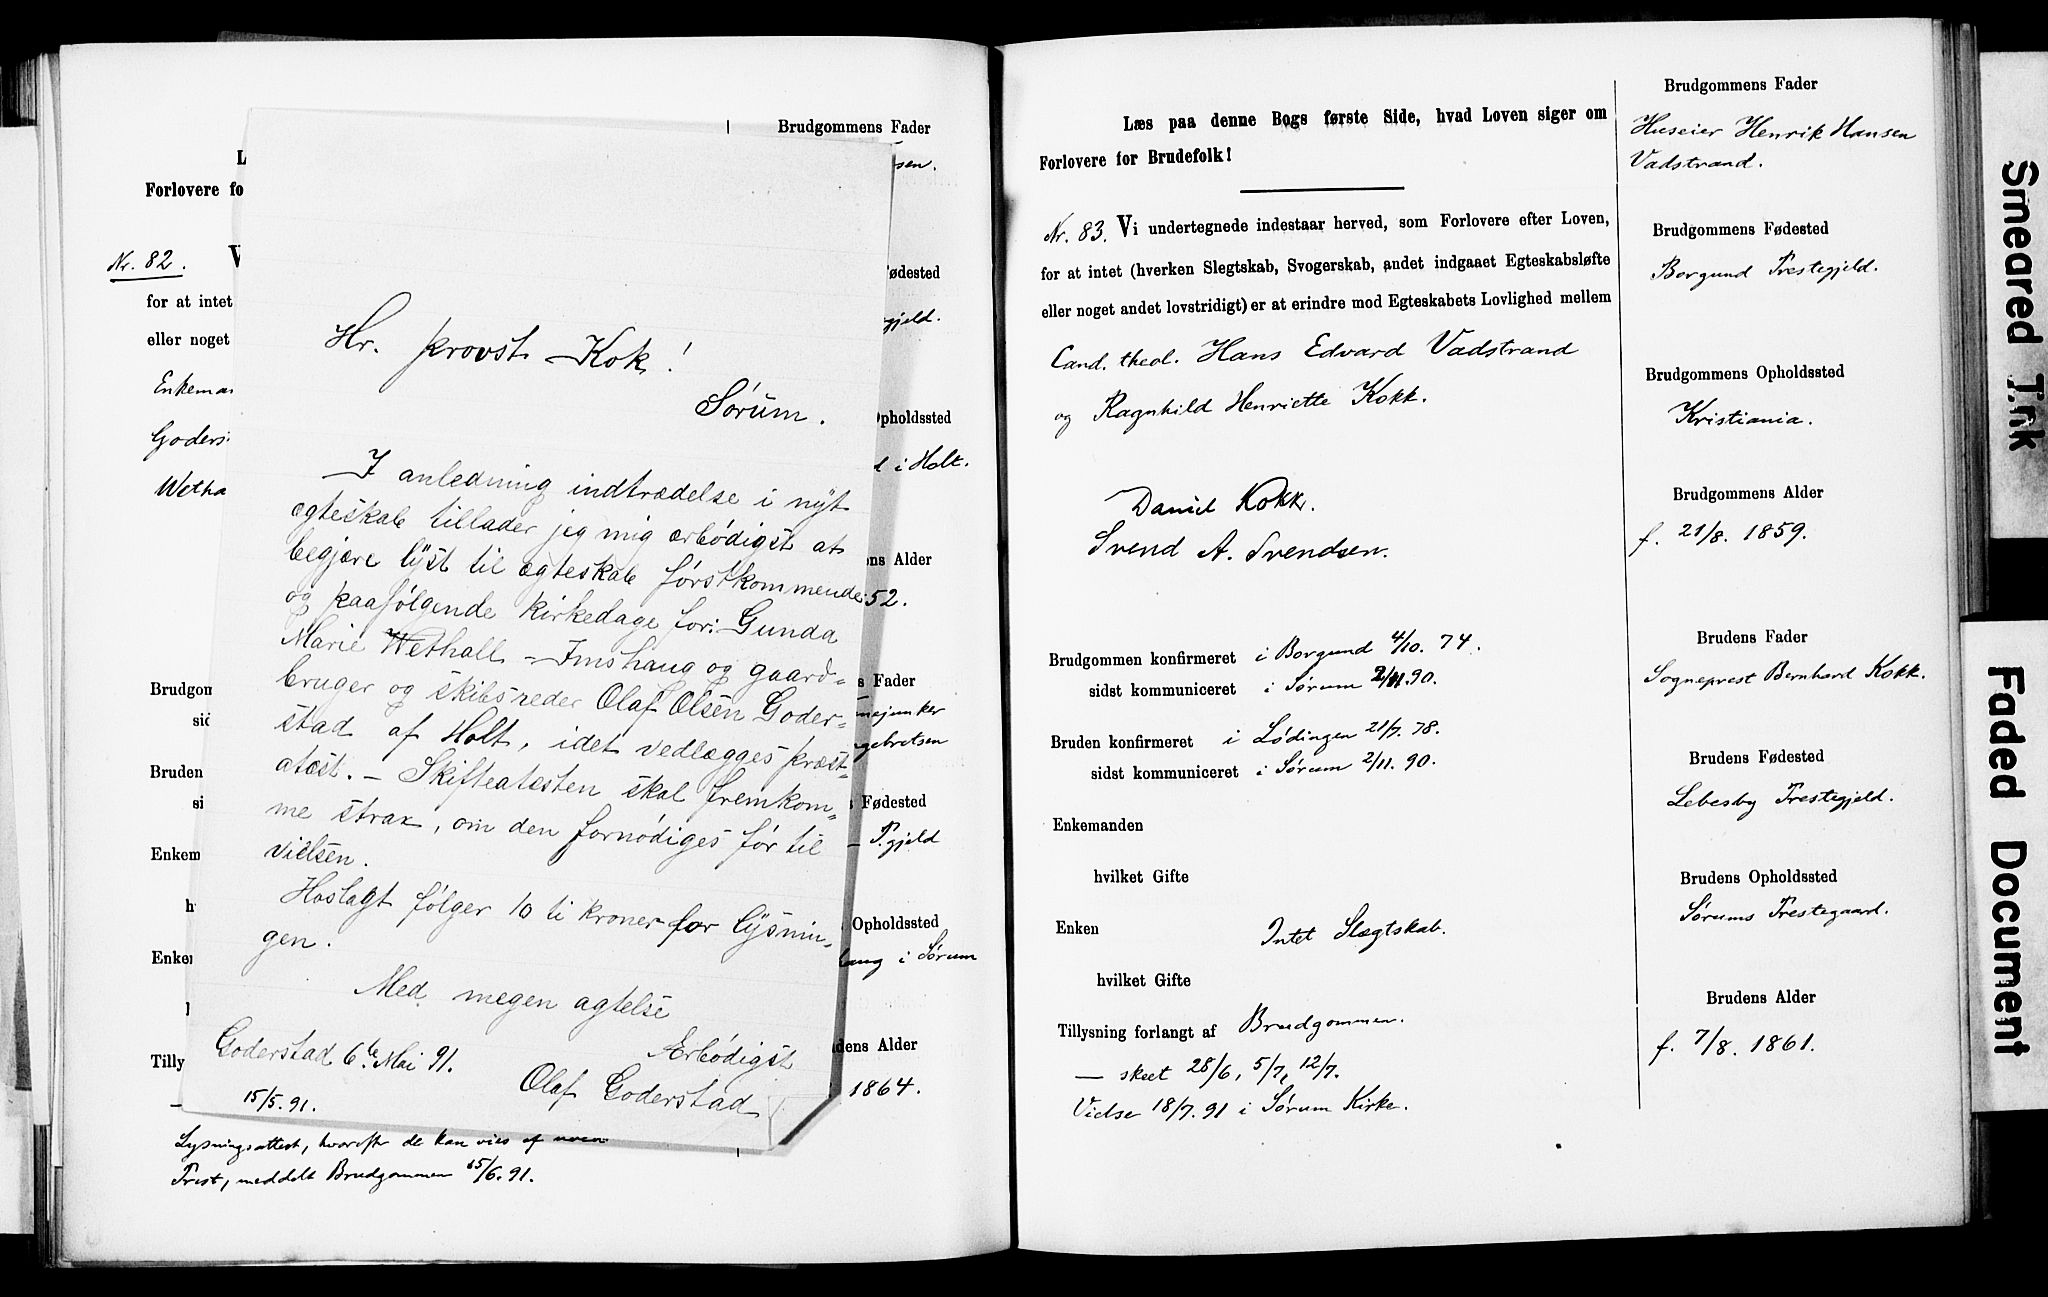 Brudgommens Fader
sen.
L
Forlovere fo
Nr. 82. V
Fødested
for at intet
gjeld.
eller noget
Enkeman
Opholdssted
Goders
i Holt.
Wetha
ens Alder
52.
s Fader
Brudgom
mejunker
sid
ngebretsen
Bruden
Fødested
si
P.gjeld
Enkem
h
Opholdssted
Enken
haug i Sørum
dens Alder
Tilly
1864.
15/5. 91.
Lysningsattest, hvorefter de kan vies af
Prest, meddelt Brudgommen 15/6. 91.
Hr. provst Kok!
Sørum.
I anledning indtrædelse i nyt
ægteskab tillader jeg mig ærbødigst at
begjære lyst til ægteskab førstkommende
og paafølgende kirkedage for: Gunda
Marie Wethall – Imshaug og gaard-
bruger og skibsreder Olaf Olsen Goder-
stad af Holt, idet vedlægges præst-
atest. – Skifteatesten skal fremkom-
me strax, om den fornødiges før til
vielsen.
Hoslagt følger 10 ti kroner for lysnin-
gen.
Med megen agtelse
Goderstad 6te Mai 91. Ærbødigst
Olaf Goderstad
Læs paa denne Bogs første Side, hvad Loven siger om
Forlovere for Brudefolk!
Nr. 83. Vi undertegnede indestaar herved, som Forlovere efter Loven,
for at intet (hverken Slegtskab, Svogerskab, andet indgaaet Egteskabsløfte
eller noget andet lovstridigt) er at erindre mod Egteskabets Lovlighed mellem
Cand. theol. Hans Edvard Vadstrand
og Ragnhild Henriette Kokk.
Daniel Kokk.
Svend A. Svendsen.
Brudgommen konfirmeret i Borgund 4/10. 74.
sidst kommuniceret i Sørum 2/11. 90.
Bruden konfirmeret i Lødingen 21/7. 78.
sidst kommuniceret i Sørum 2/11. 90.
Enkemanden
hvilket Gifte
Enken Intet Slægtskab.
hvilket Gifte
Tillysning forlangt af Brudgommen.
— skeet 28/6, 5/7, 12/7.
Vielse 18/7. 91 i Sørum Kirke.
Brudgommens Fader
Huseier Henrik Hansen
Vadstrand.
Brudgommens Fødested
Borgund Prestegjeld.
Brudgommens Opholdssted
Kristiania.
Brudgommens Alder
f. 21/8. 1859.
Brudens Fader
Sogneprest Bernhard Kokk.
Brudens Fødested
Lebesby Prestegjeld.
Brudens Opholdssted
Sørums Prestegaard.
Brudens Alder
f. 7/8. 1861.
Smeared Ink
Faded Document